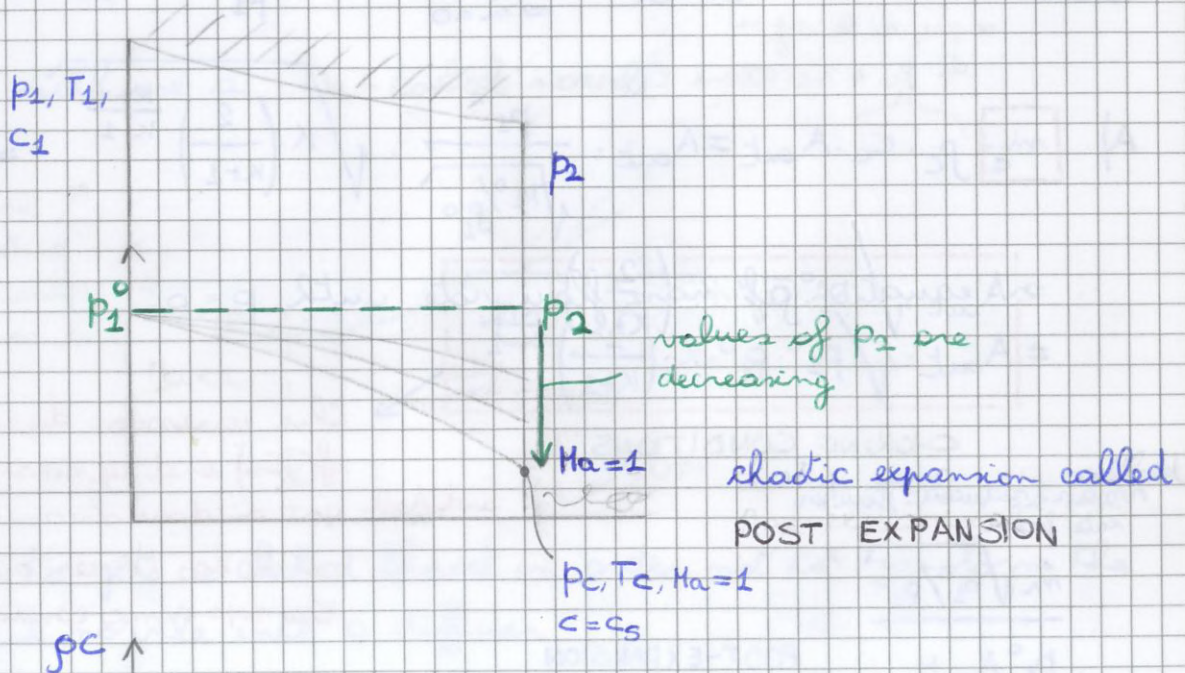 p1, T1,
c1
p2
p1° p2
values of p2 are
decreasing
Ma=1
chaotic expansion called
POST EXPANSION
pc, Tc, Ma=1
c=cs
ρc